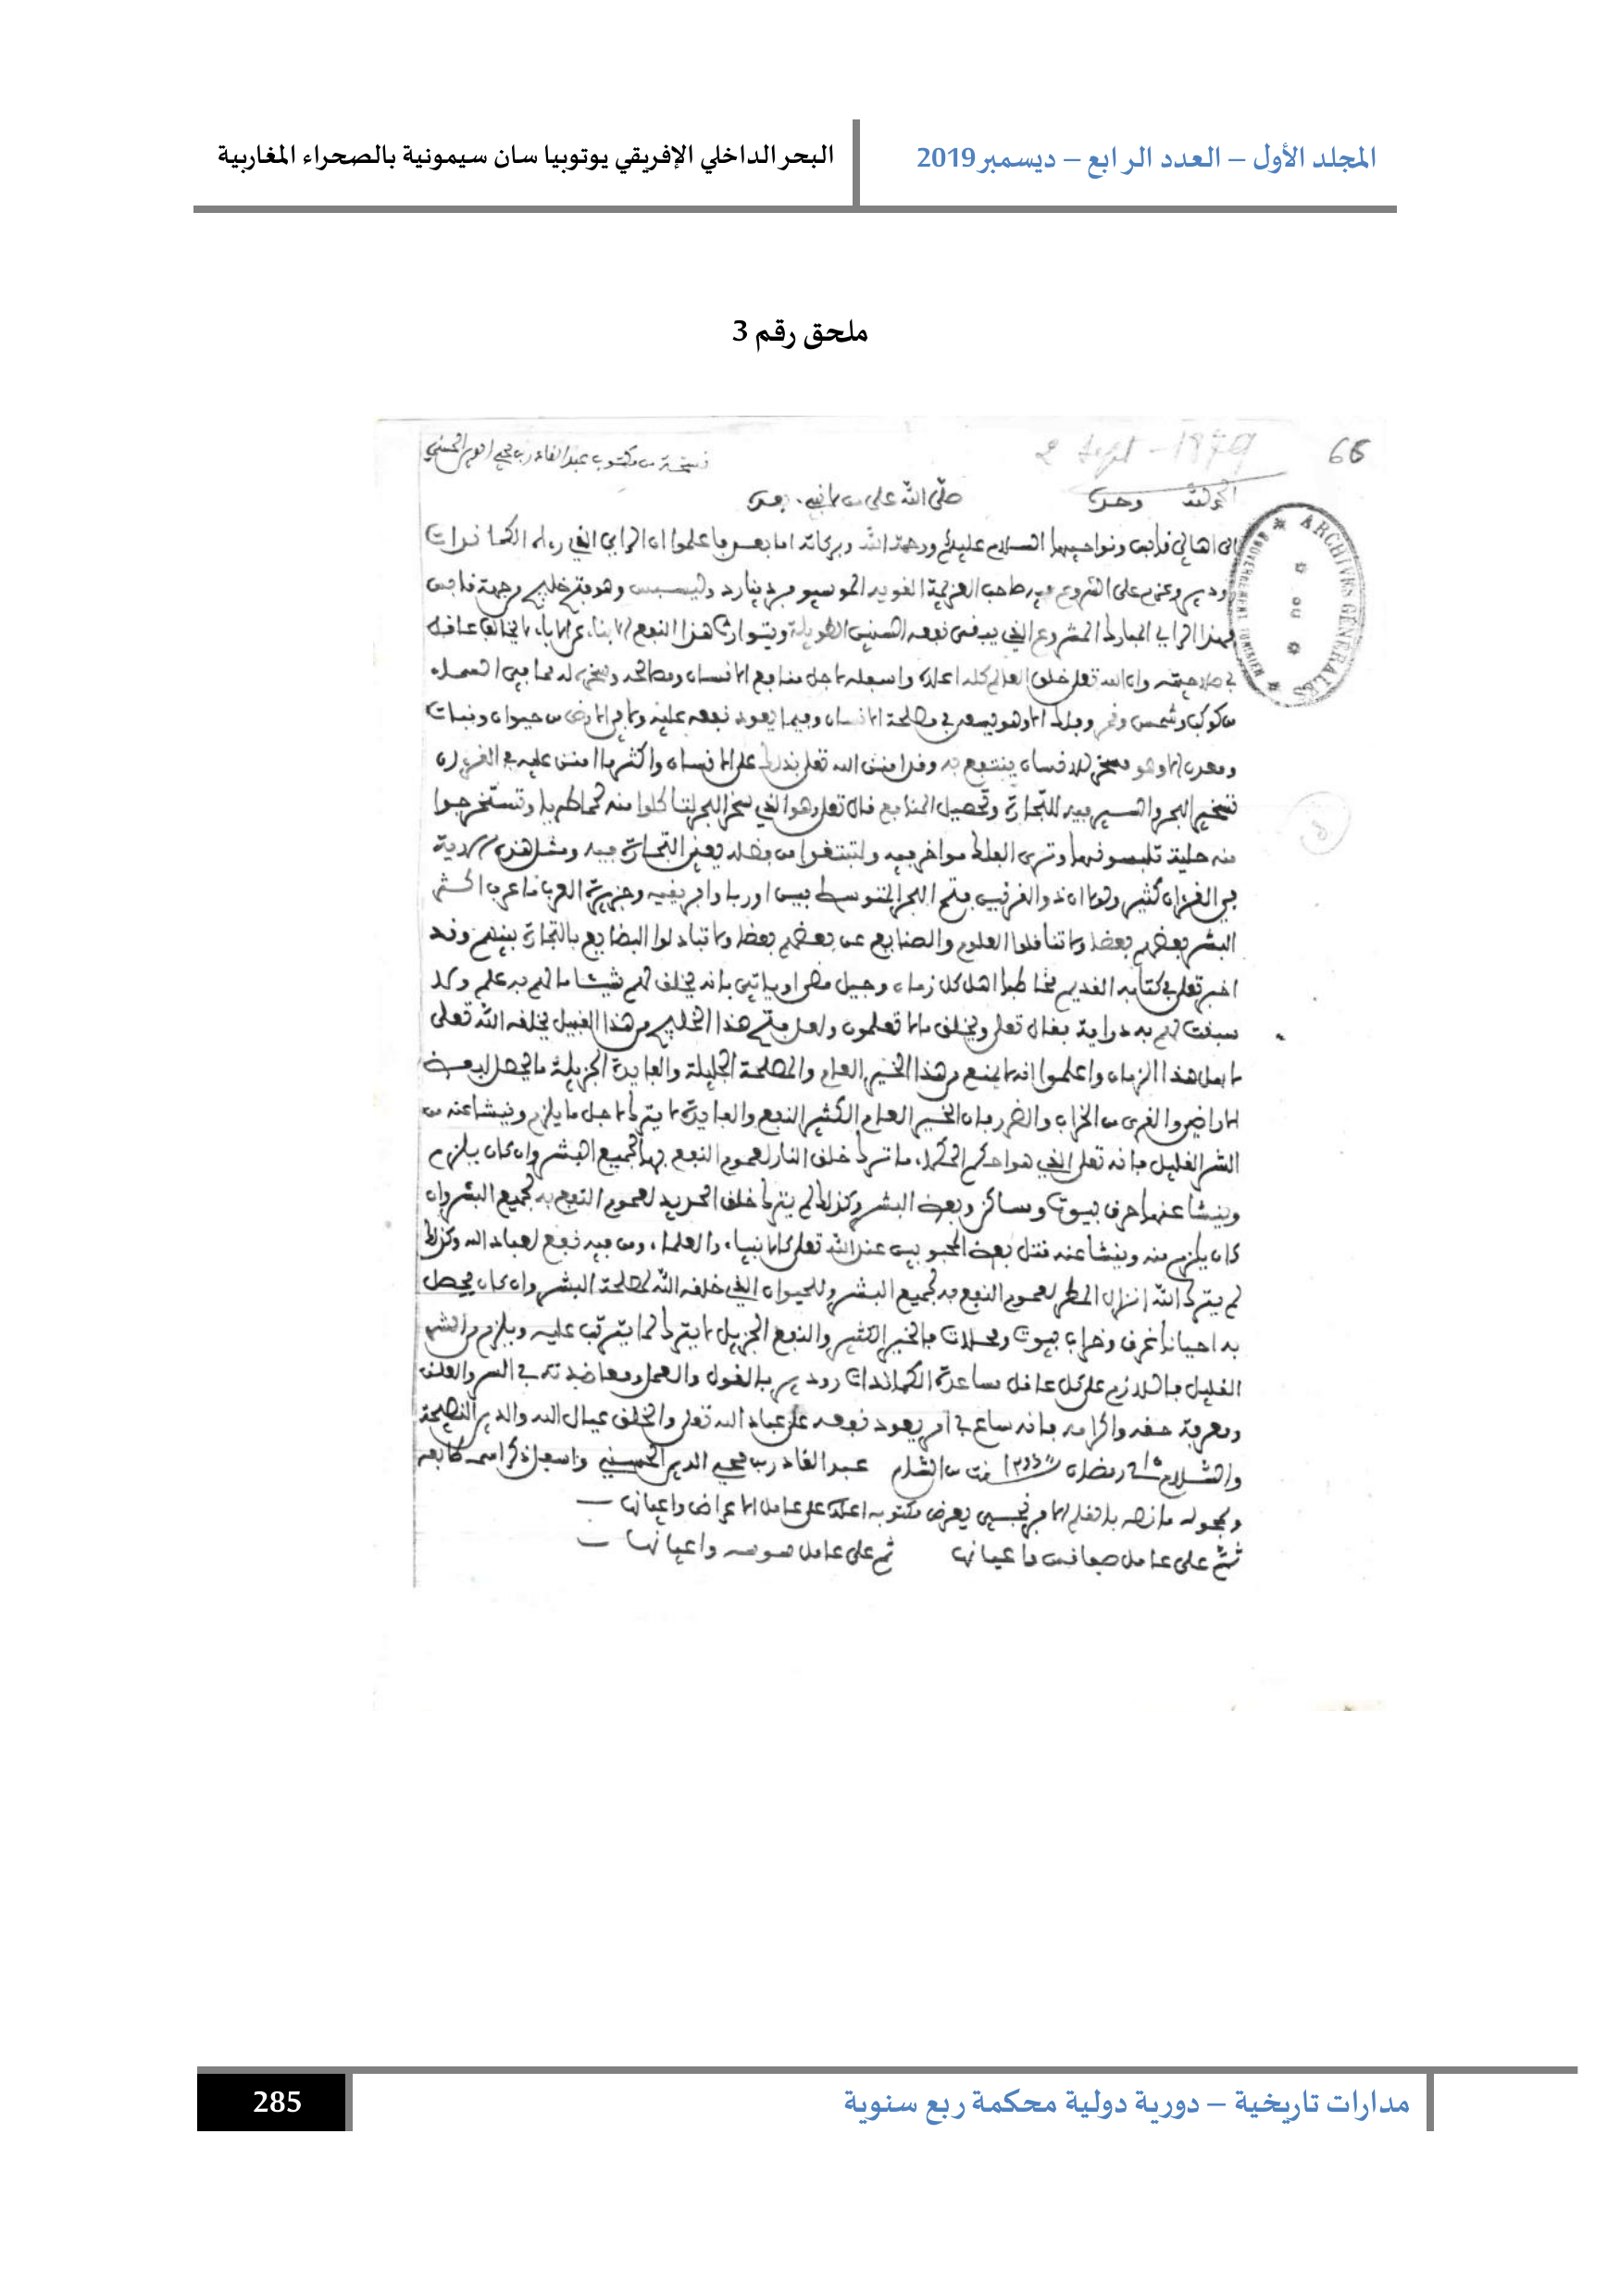 المجلد الأول – العدد الرابع – ديسمبر2019
البحر الداخلي الإفريقي يوتوبيا سان سيمونية بالصحراء المغاربية
ملحق رقم 3
66
2 Sept - 1879
نسخة من مكتوب عبد القادر بن محيي الدين الحسني
الحمد لله وحده
صلى الله على من لا نبي بعده
ARCHIVES GENERALES
GOUVERNEMENT TUNISIEN
الى اهالي قابس ونواحيها السلام عليكم ورحمة الله وبركاته اما بعد فاعلموا ان الراي الذي رءاه الكماندات
رودير وعزم على الشروع فيه صاحب العزيمة القوية الموسيو فردينارد دليسبس وهو فتح خليج من جهة قابس
فهذا الراي المبارك المشروع الذي يبقى نفعه السنين الطويلة ويتوارث هذا النفع الابناء عن الاباء لا يخالف عاقل
في صلاحيته وان الله تعلى خلق العالم كله اعلاه واسفله لاجل منافع الانسان ومصالحه وسخره له فما في السماء
من كوكب وشمس وقمر وفلك الا وهو يسعى في مصلحة الانسان وفيما يعود نفعه عليه وما في الارض من حيوان ونبات
ومعدن الا وهو مسخر للانسان ينتفع به وقد امتن الله تعلى بذلك على الانسان واكثر ما امتن عليه في القرءان
تسخير البحر والسير فيه للتجارة وتحصيل المنافع قال تعلى وهو الذي سخر البحر لتاكلوا منه لحما طريا وتستخرجوا
منه حلية تلبسونها وترى الفلك مواخر فيه ولتبتغوا من فضله يعني التجارة فيه ومثل هذه الاية
في القرءان كثير ولولا ان ذو القرنين فتح البحر المتوسط بين اوربا وافريقيه وجزيرة العرب ما عرف اكثر
البشر بعضهم بعضا ولا تناقلوا العلوم والصنايع عن بعضهم بعضا ولا تبادلوا البضايع بالتجارة بينهم وقد
اخبر تعلى في كتابه القديم مخاطبا اهل كل زمان وجيل مضى او ياتي بانه يخلق لهم شيئا ما لهم به علم ولا
سبقت لهم به دراية فقال تعلى ويخلق ما لا تعلمون ولعل فتح هذا الخليج من هذا القبيل يخلقه الله تعلى
لاهل هذا الزمان واعلموا انه لا يمنع من هذا الخير العام والمصلحة الجليلة والفايدة الجزيلة ما يحصل لبعض
الاراضي والقرى من الخراب والضرر فان الخير العام الكثير النفع والفايدة لا يترك لاجل ما يلزم وينشا عنه من
الشر القليل فانه تعلى الذي هو احكم الحكماء ما ترك خلق النار لعموم النفع بها لجميع البشر وان كان يلزم
وينشا عنها حرق بيوت ومساكن وبعض البشر وكذلك لم يترك خلق الحديد لعموم النفع به لجميع البشر وان
كان يلزم منه وينشا عنه قتل بعض المحبوبين عند الله تعلى كالانبياء والعلماء ومن فيه نفع لعباد الله وكذلك
لم يترك الله انزال المطر لعموم النفع به لجميع البشر وللحيوان الذي خلقه الله لمصلحة البشر وان كان يحصل
به احيانا غرق وخراب بيوت ومحلات فالخير الكثير والنفع الجزيل لا يترك لما يترتب عليه ويلزم من الشر
القليل فاللازم على كل عاقل مساعدة الكماندات رودير بالقول والعمل ومعاضدته في السر والعلن
ومعرفة حقه واكرامه فانه ساع في امر يعود نفعه على عباد الله تعلى والخلق عيال الله والدين النصيحة
والسلام في 15 رمضان سنة 1296 من الشام عبد القادر بن محيي الدين الحسني واسفل ذكر اسمه طابعه
وبحوله ما نصه بالقلم الافرنجي يعرض مكتوبه اعلاه على عامل الاعراض واعيانها
ثم على عامل صفاقس واعيانها ثم على عامل سوسه واعيانها
مدارات تاريخية – دورية دولية محكمة ربع سنوية
285